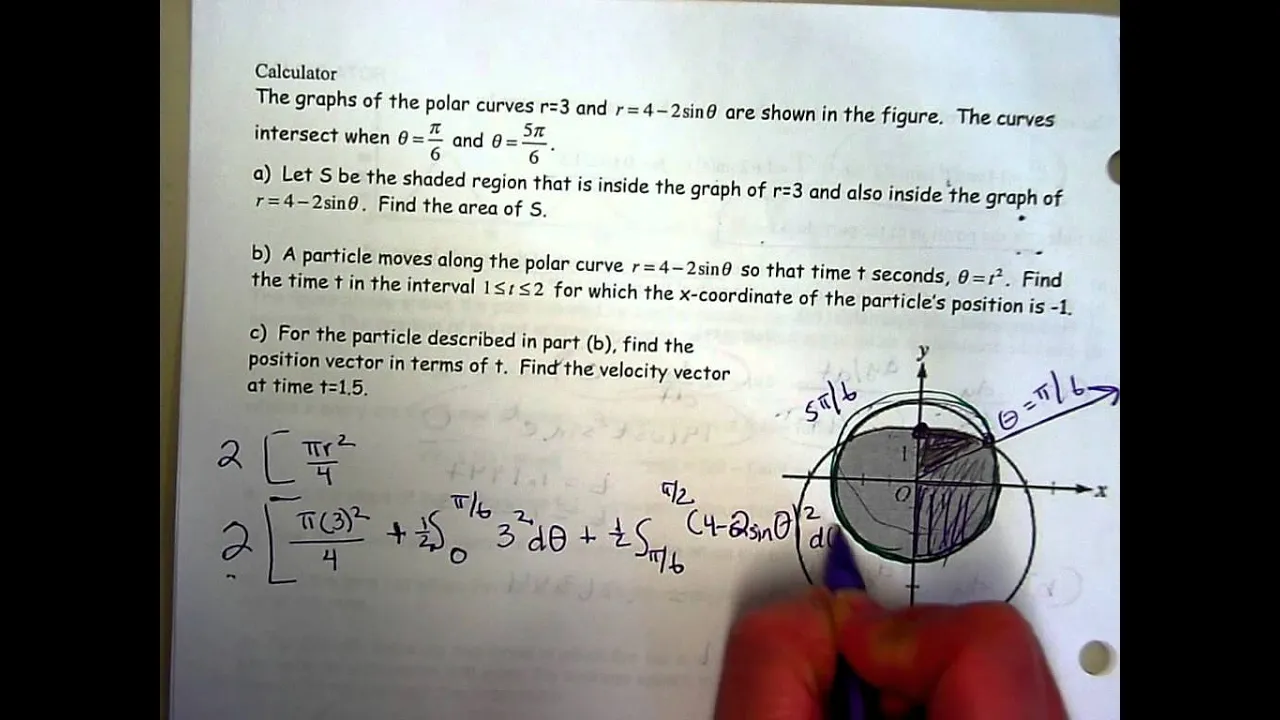 Calculator
The graphs of the polar curves r=3 and r = 4 − 2sinθ are shown in the figure. The curves
intersect when θ = π/6 and θ = 5π/6.
a) Let S be the shaded region that is inside the graph of r=3 and also inside the graph of
r = 4 − 2sinθ. Find the area of S.
b) A particle moves along the polar curve r = 4 − 2sinθ so that time t seconds, θ = t². Find
the time t in the interval 1 ≤ t ≤ 2 for which the x-coordinate of the particle's position is -1.
c) For the particle described in part (b), find the
position vector in terms of t. Find the velocity vector
at time t=1.5.
y
5π/6
θ = π/6
1
O
x
2 [ πr²/4
2 [ π(3)²/4 + ½∫₀^π/6 3² dθ + ½∫π/6^π/2 (4-2sinθ)² d